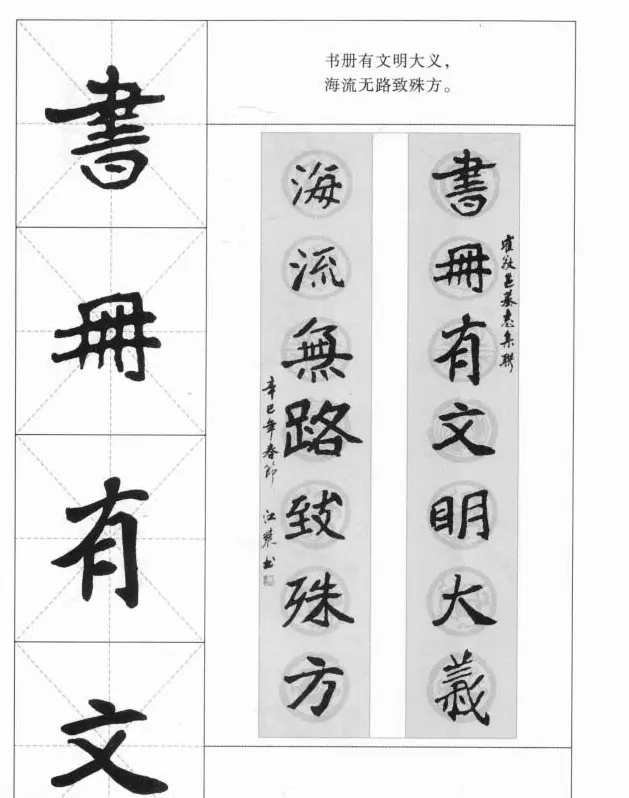 书册有文明大义，
海流无路致殊方。
書
冊
有
文
書冊有文明大義
崔敬邕墓志集聯
海流無路致殊方
辛巳年春節 江